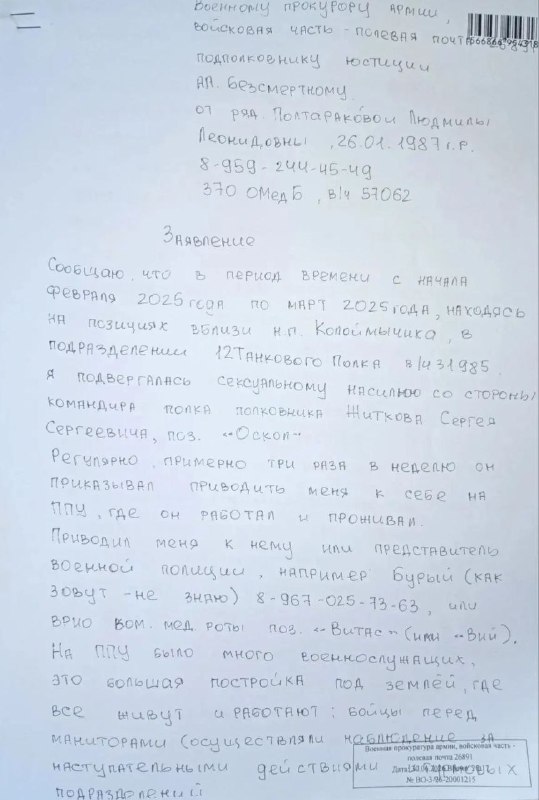 Военному прокурору армии,
войсковая часть - полевая почта
подполковнику юстиции
Ал. Безсмертному.
от ряд. Полтараковой Людмилы
Леонидовны, 26.01.1987 г.р.
8-959-244-45-49
370 ОМедБ, в/ч 57062
Заявление
Сообщаю, что в период времени с начала
февраля 2025 года по март 2025 года, находясь
на позициях вблизи н.п. Колоймычиха, в
подразделении 12 Танкового Полка в/ч 31985.
я подвергалась сексуальному насилую со стороны
командира полка полковника Житкова Сергея
Сергеевича, поз. "Оскол"
Регулярно, примерно три раза в неделю он
приказывал приводить меня к себе на
ППУ, где он работал и проживал.
Приводил меня к нему или представитель
военной полиции, например Бурый (как
зовут - не знаю) 8-967-025-73-63, или
врио ком. мед. роты поз. "Витас" (или "Вий").
На ППУ было много военнослужащих,
это большая постройка под землёй, где
все живут и работают: бойцы перед
маниторами (осуществляли наблюдение за
наступательными действиями штурмовых
подразделений
Военная прокуратура армии, войсковая часть -
полевая почта 26891
№ ВО-3-96-20001215